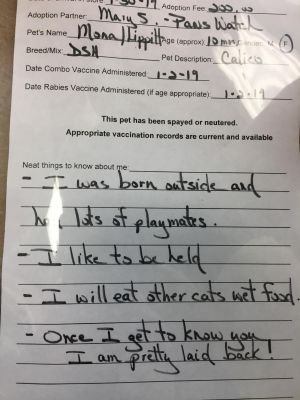 Adoption Fee: 200.00
Adoption Partner: Mary S. - Paws Watch
Pet's Name Mona/Pippitt Age (approx) 10 mn, Gender: M F
Breed/Mix: DSH Pet Description: Calico
Date Combo Vaccine Administered: 1-2-19
Date Rabies Vaccine Administered (if age appropriate): 1-2-19
This pet has been spayed or neutered.
Appropriate vaccination records are current and available
Neat things to know about me:
- I was born outside and
had lots of playmates.
- I like to be held
- I will eat other cats wet food.
- Once I get to know you
I am pretty laid back!